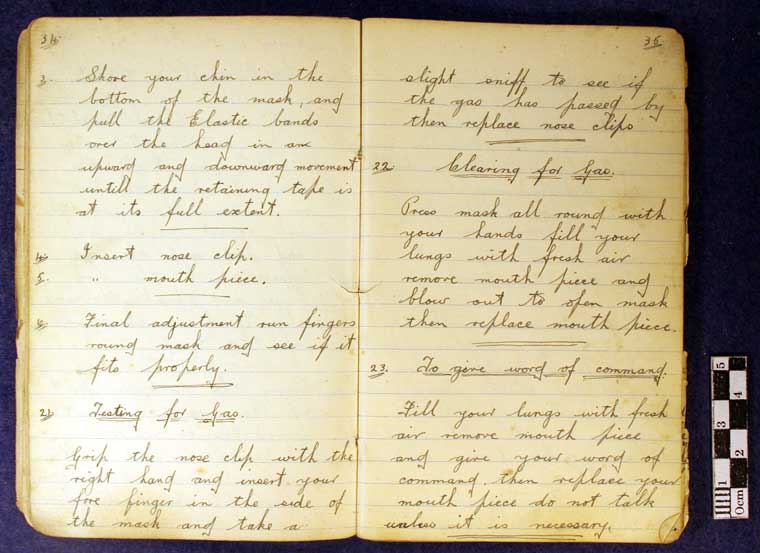 34.
3. Shove your chin in the
bottom of the mask, and
pull the Elastic bands
over the head in an
upward and downward movement
untill the retaining tape is
at its full extent.
4. Insert nose clip.
5. " mouth piece.
6. Final adjustment run fingers
round mask and see if it
fits properly.
21. Testing for Gas.
Grip the nose clip with the
right hand and insert your
fore finger in the side of
the mask and take a
35
slight sniff to see if
the gas has passed by
then replace nose clips
22. Clearing for Gas.
Press mask all round with
your hands fill your
lungs with fresh air
remove mouth piece and
blow out to open mask
then replace mouth piece.
23. To give word of command.
Fill your lungs with fresh
air remove mouth piece
and give your word of
command. then replace your
mouth piece do not talk
unless it is necessary.
5
3
1
4
2
0cm